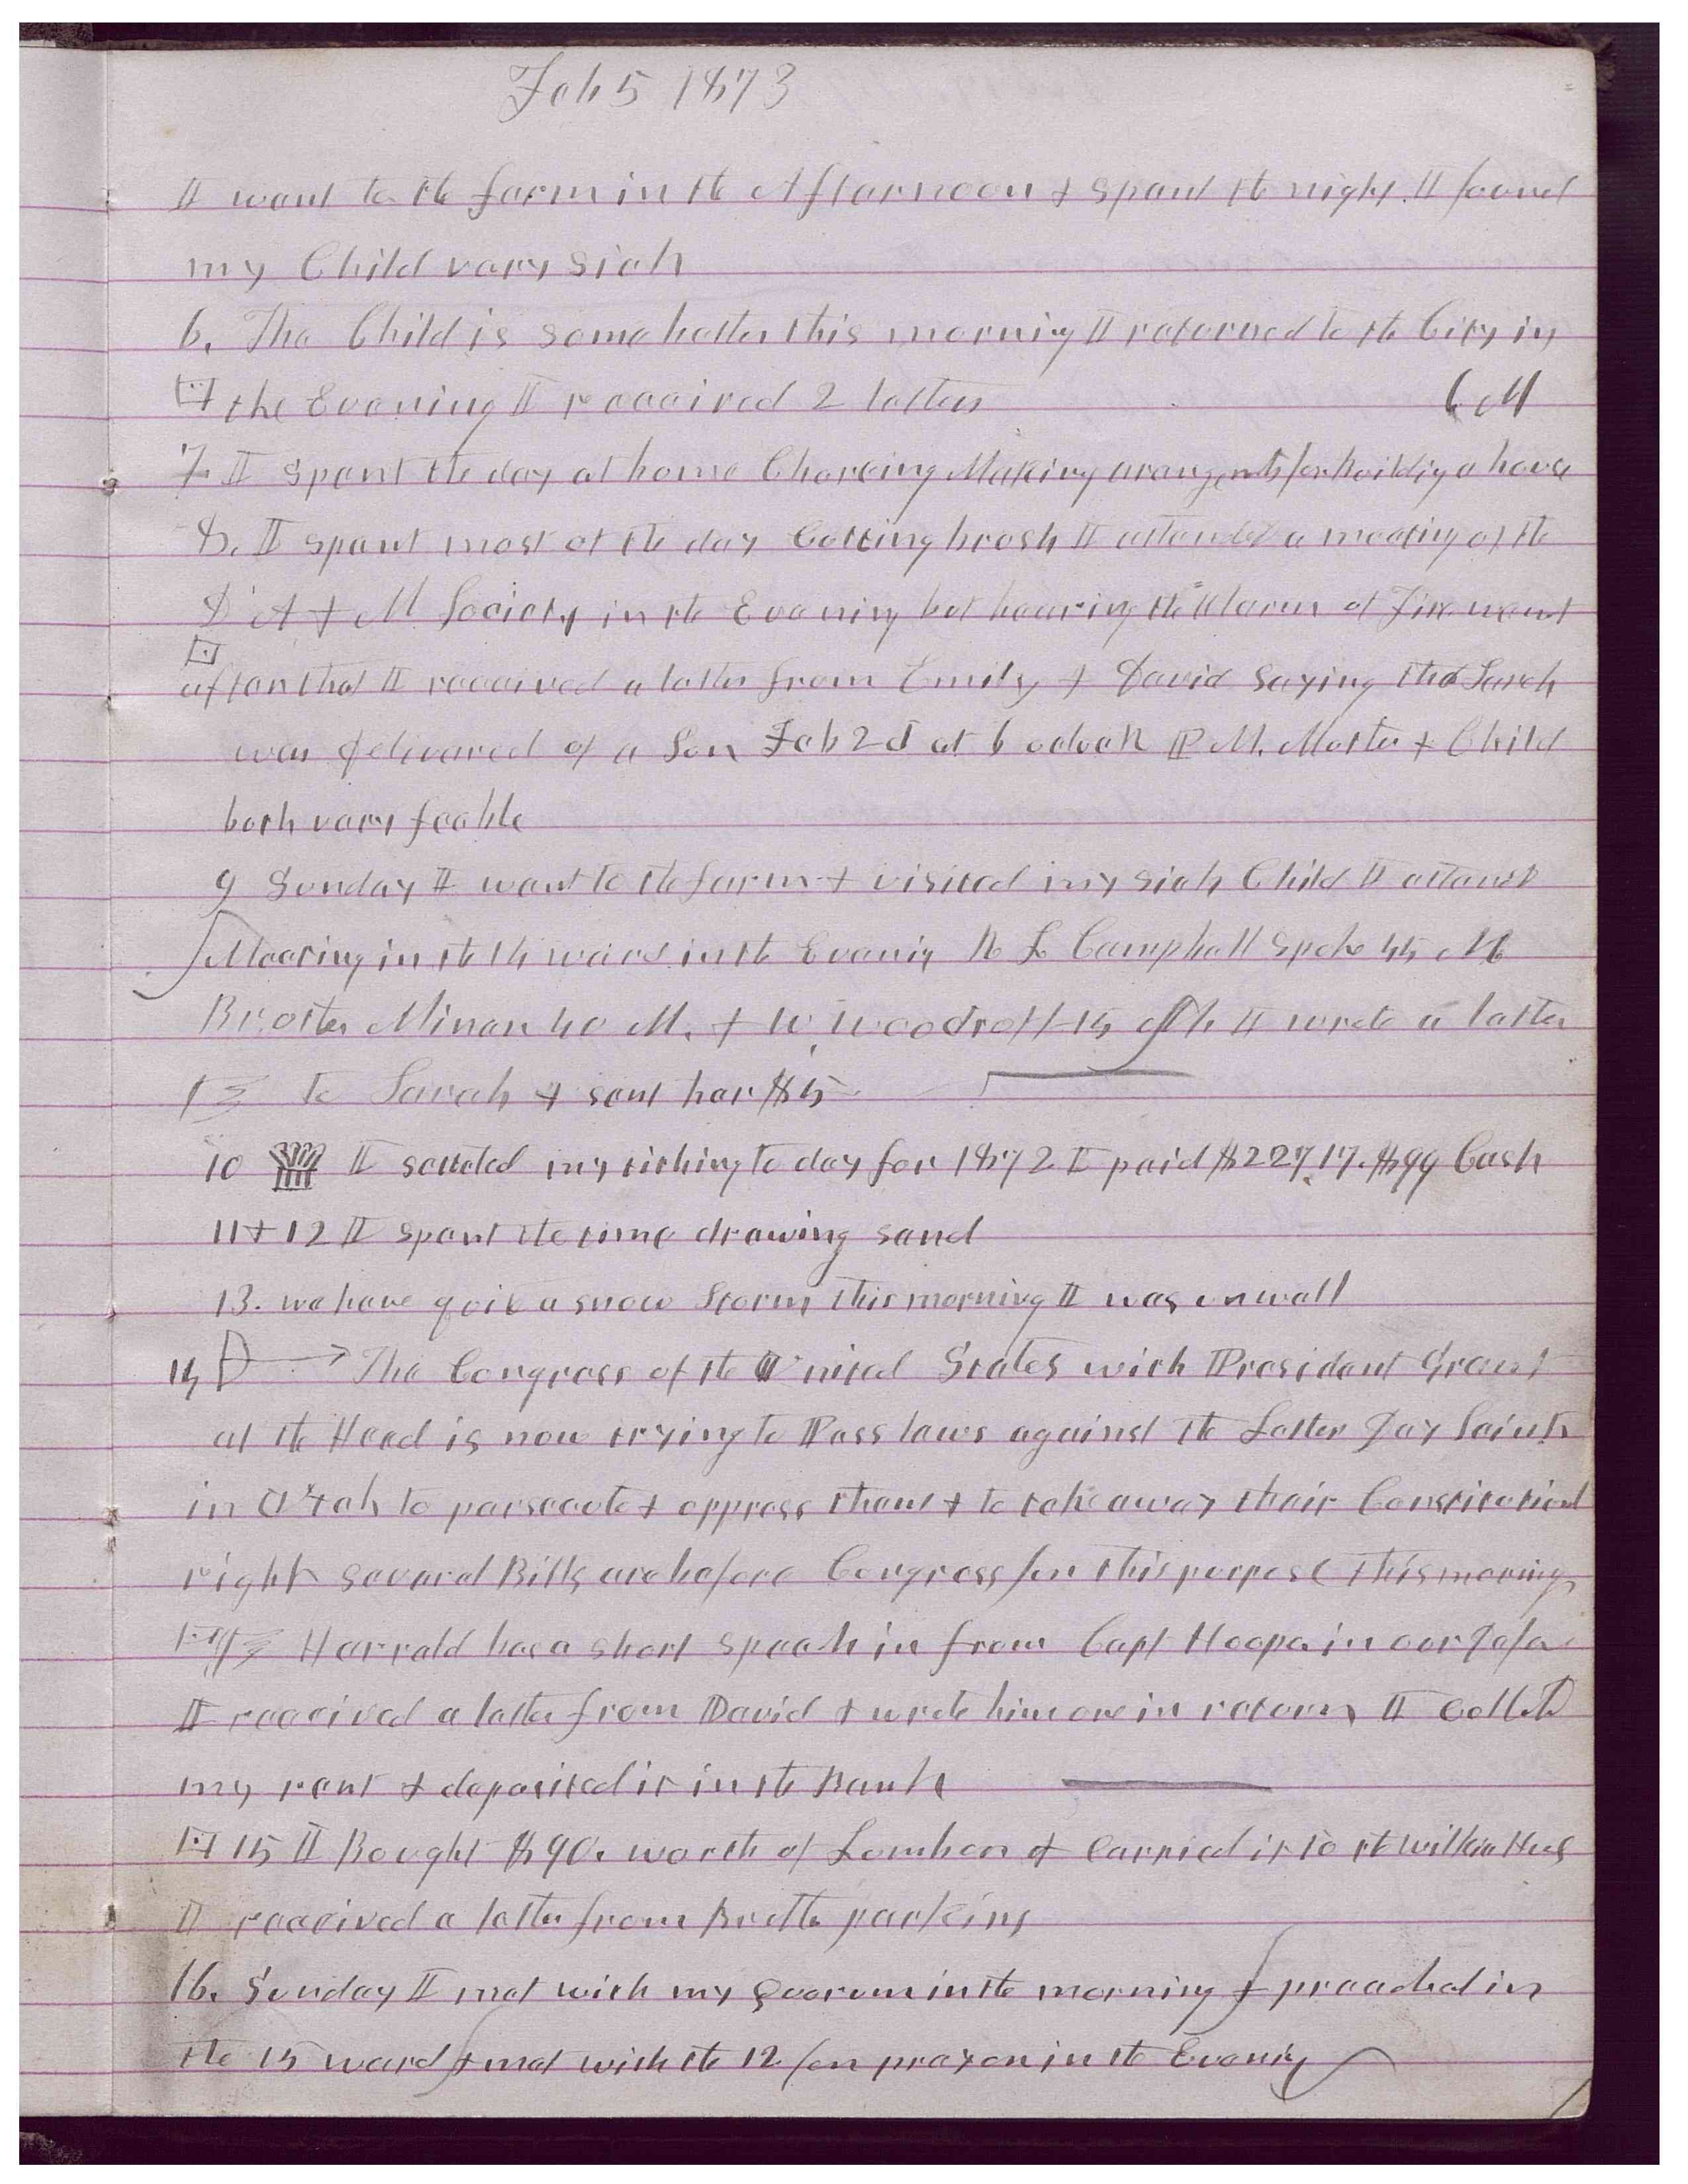 Feb 5 1873
I went to the farm in the Afternoon & spent the night. I found
my Child very sick
6. The Child is some better this morning I returned to the City in
the Evening I received 2 letters 6 M
7. I spent the day at home Choreing Making arangments for building a house
8. I spent most of the day Cutting brush I attended a meeting of the
D A & M Society in the Evening but hearing the Alarm of Fire went
after that I received a letter from Emily & David saying that Sarah
was delivered of a Son Feb 2d at 6 oclock P M. Mother & Child
both very feeble
9 Sunday I went to the farm & visited my sick Child I attend
Meeting in the 14 ward in the Evenig R L Campbell spoke 45 M
Brother Minan 40 M. & W. Woodruff 15 I wrote a letter
to Sarah & sent her $5
10 I settled my tithing to day for 1872 I paid $227.17. $99 Cash
11 & 12 I spent the time drawing sand
13. we have quite a snow Storm this morning I was unwell
14 The Congress of the United States with President Grant
at the Head is now trying to Pass laws against the Latter Day Saints
in Utah to persecute & oppress them & to take away their Constitutional
rights several Bills are before Congress for this purpose this mornings
Herrald has a short speech in from Capt Hooper in our defen
I received a letter from David & wrote him one in return I colletd
my rent & deposited it in the Bank
15 I Bought $90. worth of Lumber & carried it to the Wilkin
I received a letter from Brother parkins
16. Sunday I met with my Quorum in the morning & preached in
the 15 ward & met with the 12 for prayer in the Evenig